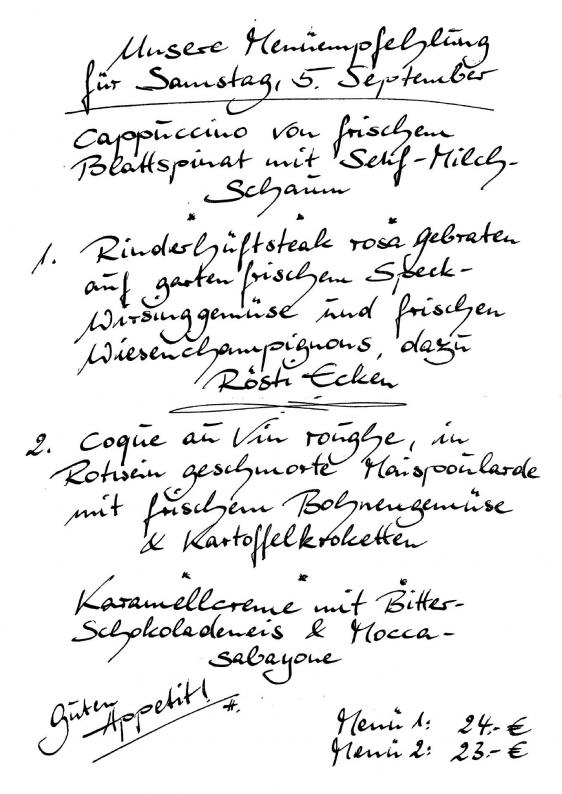 Unsere Menüempfehlung
für Samstag, 5. September
Cappuccino von frischem
Blattspinat mit Senf-Milch-
Schaum
* * *
1. Rinderhüftsteak rosa gebraten
auf gartenfrischem Speck-
Wirsinggemüse und frischen
Wiesenchampignons, dazu
Rösti Ecken
2. Coque au Vin roughe, in
Rotwein geschmorte Maispoularde
mit frischem Bohnengemüse
& Kartoffelkroketten
* * *
Karamellcreme mit Bitter-
Schokoladeneis & Mocca-
Sabayone
Guten
Appetit!
Menü 1: 24.- €
Menü 2: 23.- €